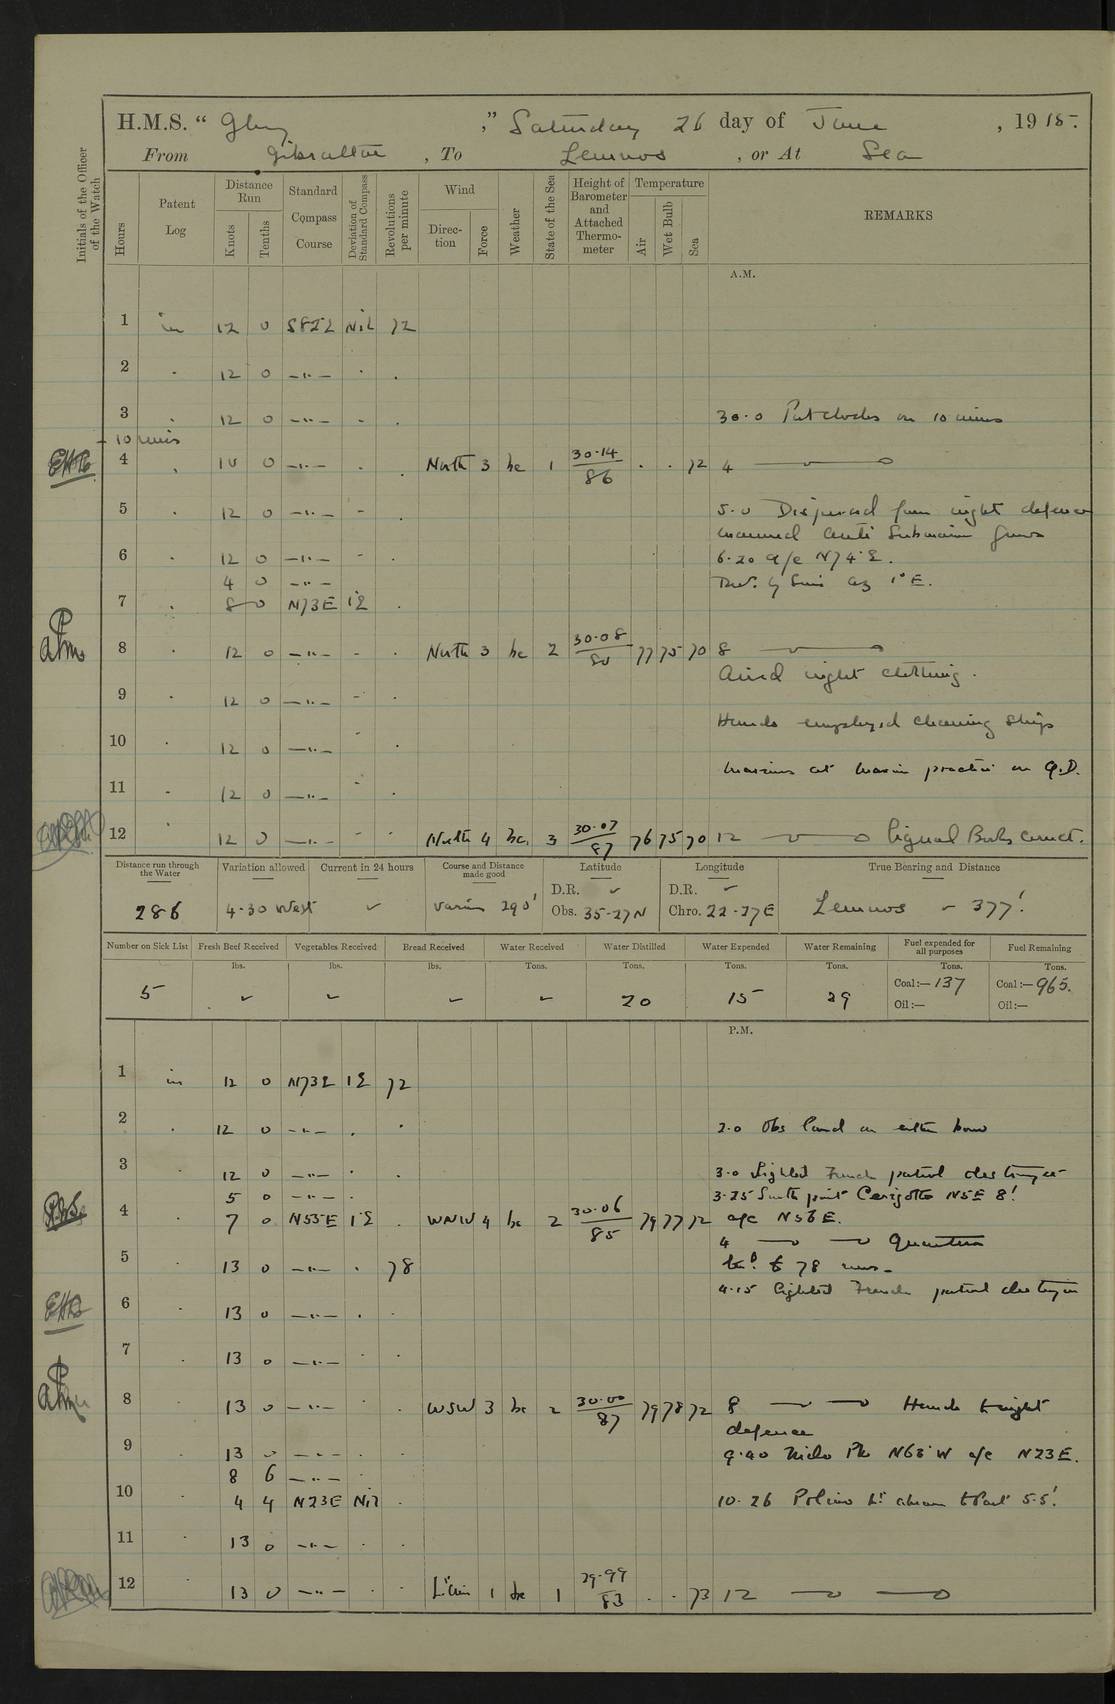 H.M.S. " Glory ," Saturday 26 day of June , 1915.
From Gibraltar , To Lemnos , or At Sea
Initials of the Officer of the Watch
Hours Patent Log Distance Run Knots Tenths Standard Compass Course Deviation of Standard Compass Revolutions per minute Wind Direction Force Weather State of the Sea Height of Barometer and Attached Thermometer Temperature Air Wet Bulb Sea REMARKS
A.M.
1 in 12 0 S82E Nil 72
2 . 12 0 —"— . .
3 . 12 0 —"— . . 3.0-0 Put clocks on 10 mins
- 10 mins
4 . 10 0 —"— . . North 3 bc 1 30.14/86 . . 72 4
5 . 12 0 —"— - . 5.0 Dispersed from night defence
manned Anti Submarine guns
6 . 12 0 —"— - . 6.20 a/c N74°E.
4 0 —"— Dev. by Sun's Az 1°E.
7 . 8 0 N73E 1E .
8 . 12 0 —"— - . North 3 bc 2 30.08/80 77 75 70 8
Aired night clothing.
9 . 12 0 —"— - .
Hands employed cleaning ship
10 . 12 0 —"— - .
Marines at Maxim practice on Q.D.
11 . 12 0 —"— - .
12 . 12 0 —"— - . North 4 bc. 3 30.07/87 76 75 70 12 Signal Books correct.
Distance run through the Water Variation allowed Current in 24 hours Course and Distance made good Latitude Longitude True Bearing and Distance
D.R. ✓ D.R. ✓
286 4.30 West ✓ various 290' Obs. 35-27N Chro. 22-27E Lemnos - 377'.
Number on Sick List Fresh Beef Received Vegetables Received Bread Received Water Received Water Distilled Water Expended Water Remaining Fuel expended for all purposes Fuel Remaining
lbs. lbs. lbs. Tons. Tons. Tons. Tons. Tons. Tons.
5 ✓ ✓ ✓ ✓ 20 15 29 Coal:— 137 Coal:— 965.
Oil:— Oil:—
P.M.
1 in 12 0 N73E 1E 72
2 . 12 0 —"— . . 2.0 Obs land on either bow
3 . 12 0 —"— . . 3.0 Sighted French patrol destroyer
5 0 —"— . 3.25 South point Cerigotto N5E 8'.
4 . 7 0 N55E 1E . WNW 4 bc 2 30.06/85 79 77 72 a/c N56E.
4 Quarters
5 . 13 0 —"— . 78 to 78 revs.
4.15 Sighted French patrol destroyer
6 . 13 0 —"— . .
7 . 13 0 —"— . .
8 . 13 0 —"— . . WSW 3 bc 2 30.00/87 79 78 72 8 Hands to night
defence
9 . 13 0 —"— . . 9.40 Milo Pk N63°W a/c N23E.
8 6 —"— .
10 . 4 4 N23E Nil . 10.26 Polino Lt abeam to Port 5.5'.
11 . 13 0 —"— . .
12 . 13 0 —"— . . Lt airs 1 bc 1 29.99/83 . . 73 12